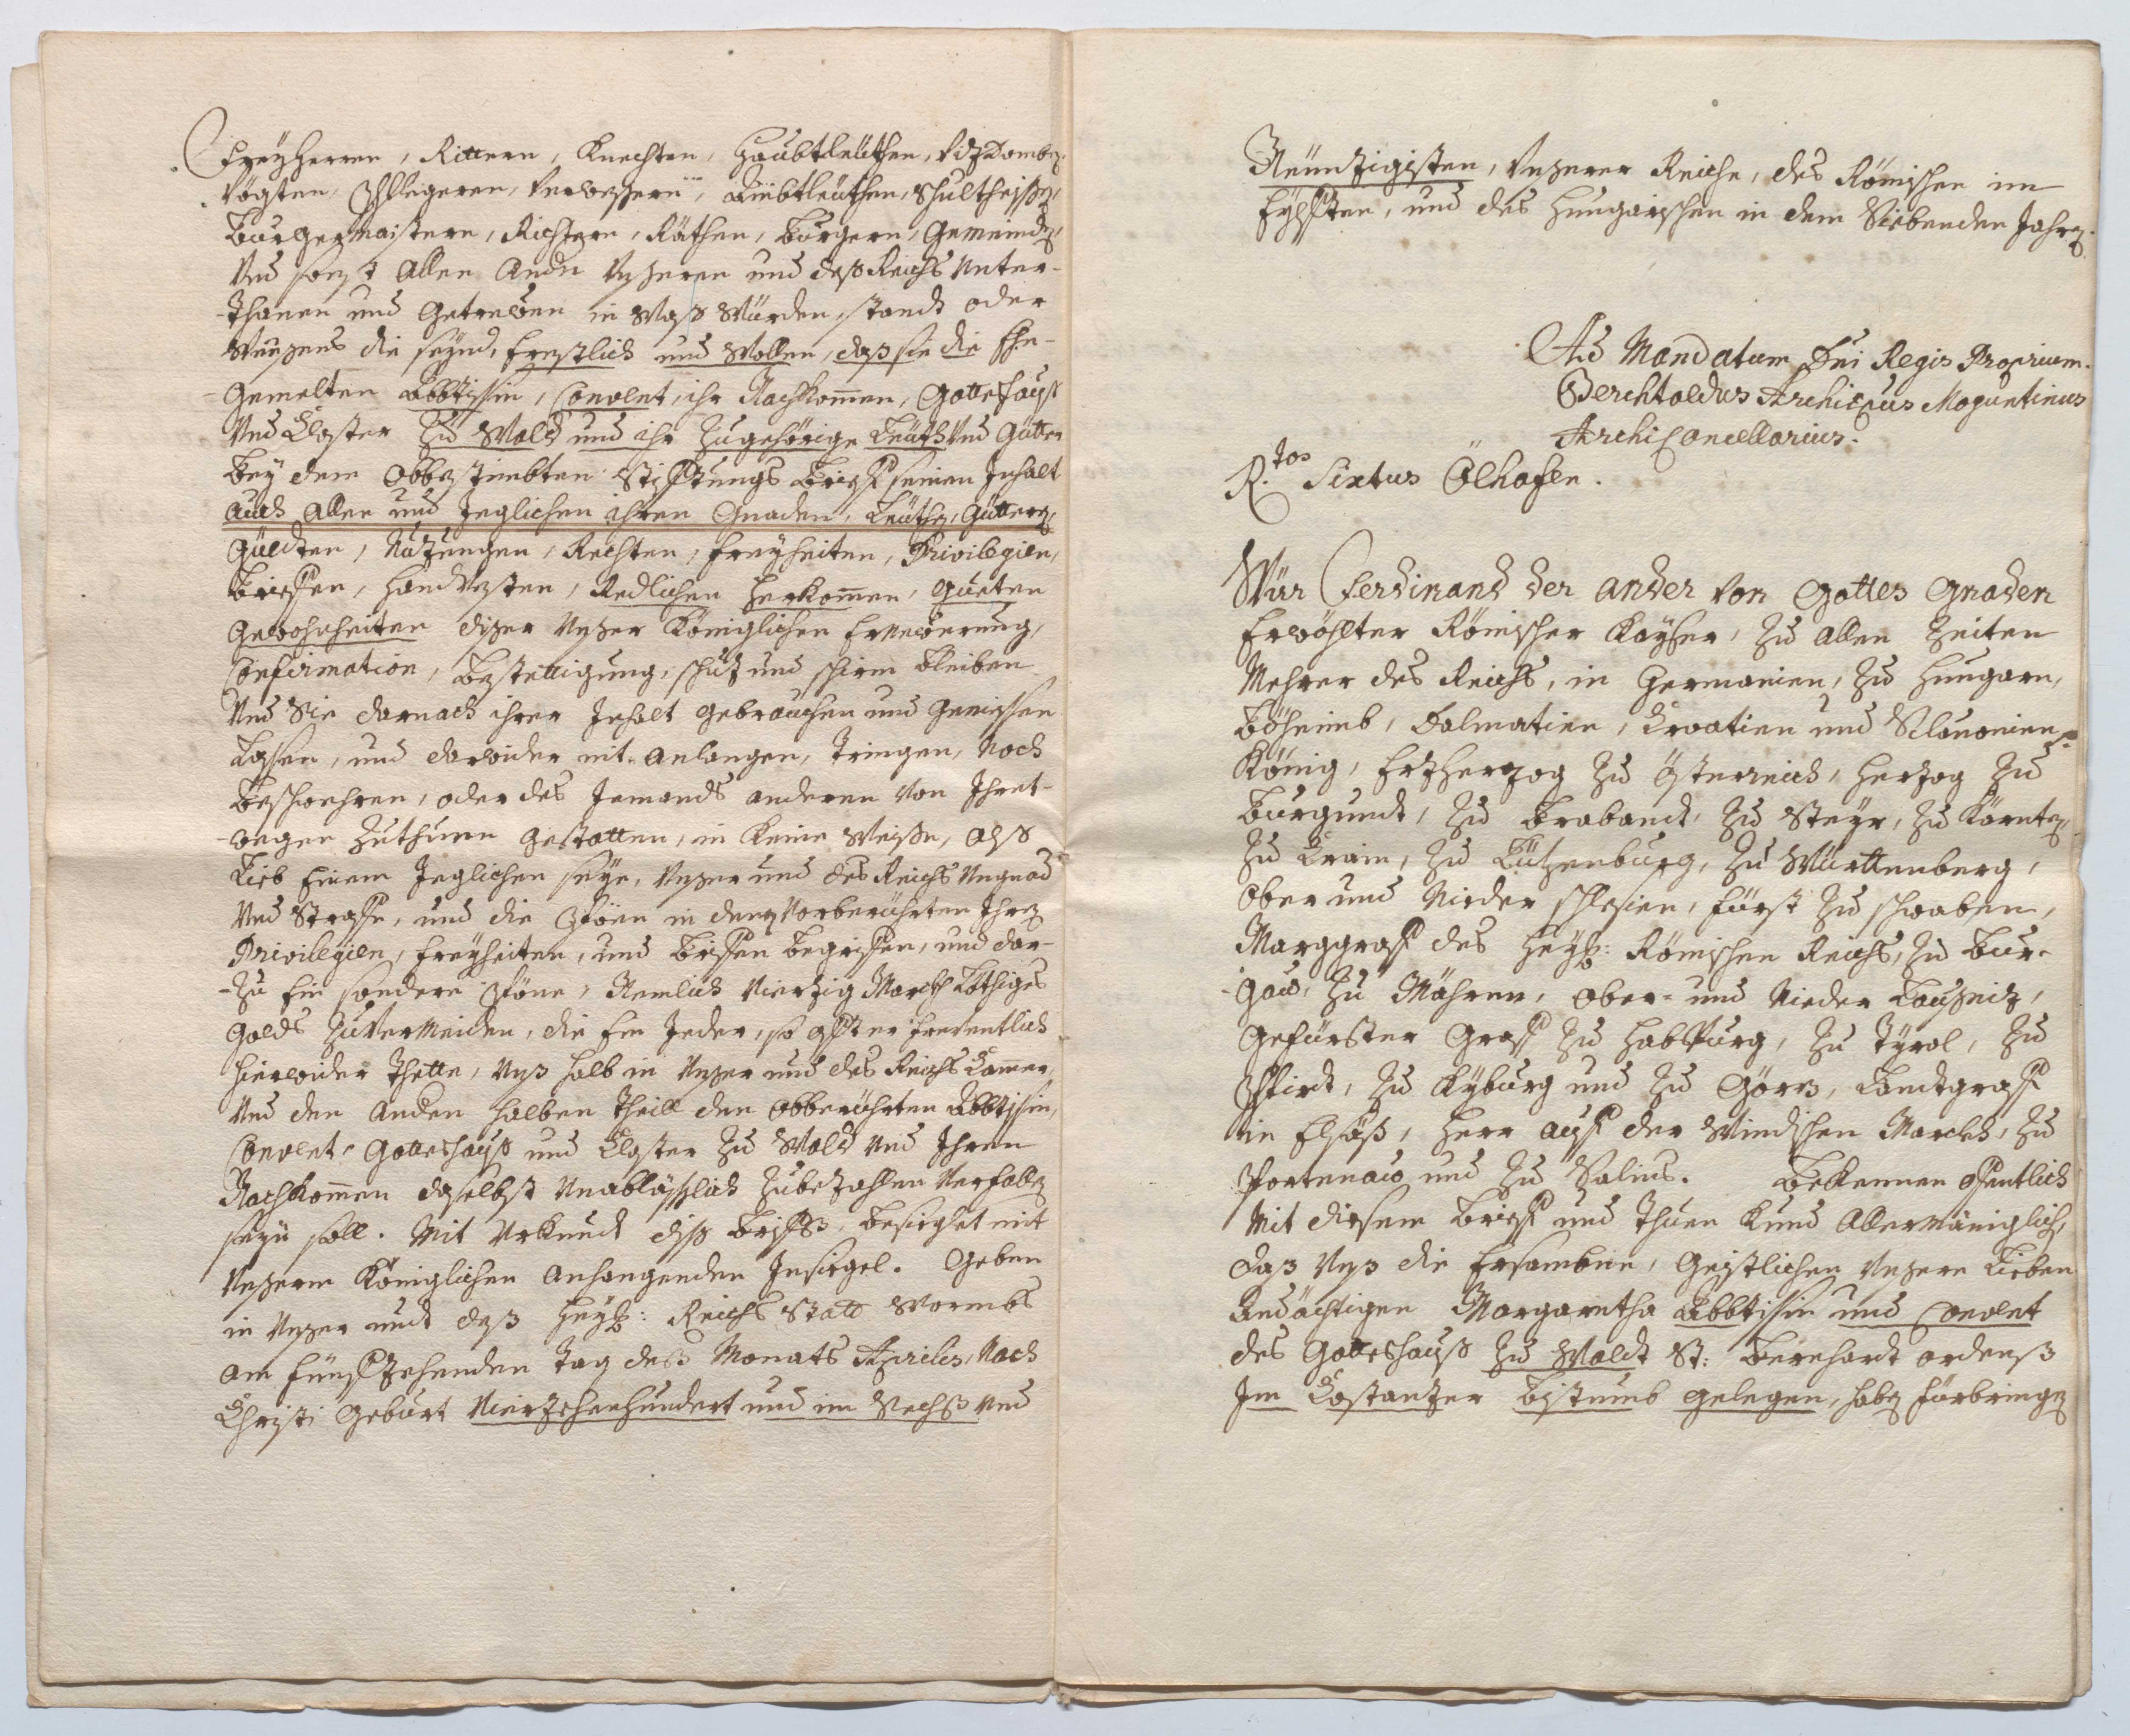 Freyherren, Rittern, Knechten, Haubtleüthen, Vizdomben
Vögten, Pflegeren, Verwesern, Ambtleüthen, Schultheißen,
Burgermaistern, Richtern, Räthen, Burgern, Gemeinden,
Und sonst allen andn Unseren und deß Reichs Unter-
-thanen und Getrewen in waß Würden, standt oder
Weesens die seynd, Ernstlich und wollen, daß sie die Ehe-
-gemelten Abbtissin, Convent, ihr Nachkom̄en, Gottshauß
Und Closter zu Wald und ihr zugehörige Leüth und Gütter
Bey dem obbestimbten Stifftungs Brieff seinen Inhalt
auch allen und Jeglichen ihren Gnaden, Leüthen, Güttern,
Güldten, Nutzungen, Rechten, Freyheiten, Privilegien,
Brieffen, Handvesten, Redlichen Herkom̄en, gueten
Gewohnheiten diser Unser Königlichen Ernewerung,
Confirmation, Bestettigung, schutz und schirm bleiben
Und Sie darnach ihrer Inhalt gebrauchen und geniessen
Lassen, und darwider nit anlangen, tringen, noch
Beschwehren, oder des Jemands anderen von Ihret-
-wegen zuthuen gestatten, in keine Weiße, alß
Lieb Einem Jeglichen seye, Unser und des Reichs Ungnad
Und Straffe, und die Pöen in den Vorberührten Ihren
Privilegien, Freyheiten, und Brieffen begriffen, und dar-
-zu Ein sondere Pöne, Nemlich Viertzig Marckh Löthiges
Golds zuvermeiden, die Ein Jeder, so offt er freventlich
hierwider Thette, Unß halb in Unser und des Reichs Cam̄er,
Und den anden halben Theill den obberührten Abbtissin,
Convent, Gottshauß und Closter zu Wald und Ihren
Nachkom̄en daselbst Unabläßlich zubezahlen verfallen
seyn soll. Mit Urkundt diß Brieffs, besieglet mit
Unserm Königlichen anhangenden Insiegel. Geben
in Unser undt deß Heyl: Reichs Statt Wormbs
am fünffzehenden Tag deß Monats Aprilis, Nach
Christi Geburt Vierzehenhundert und im Sechß und
Neüntzigisten, Unserer Reiche, des Römischen im
Eylfften, und des Hungarischen in dem Siebenden Jahren.
Ad Mandatum Dni Regis Proprium.
Berchtoldus Archiepus Moguntinus
ArchiCancellarius.
R.tas Sixtus Ölhafen.
Wür Ferdinand der ander von Gottes Gnaden
Erwöhlter Römischer Kayser, zu allen Zeiten
Mehrer des Reichs, in Germanien, zu Hungarn,
Böheimb, Dalmatien, Croatien und Sclavonien
König, Ertzherzog zu Österreich, Herzog zu
Burgundt, zu Brabandt, zu Steyr, zu Kärnten,
zu Crain, zu Lützenburg, zu Württenberg,
Ober und Nieder schlesien, fürst zu schwaben,
Marggraff des Heyl: Römischen Reichs, zu Bur-
-gaw, zu Mähren, Ober- und Nieder Laußnitz,
Gefürster Graff zu Habspurg, zu Tyrol, zu
Pfirdt, zu Kyburg und zu Görz, Landtgraff
in Elsäß, Herr auff der Windischen Marckh, zu
Portenaw und zu Salins. Bekennen offentlich
Mit diesem Brieff und Thuen kund Allermäniglich,
daß Unß die Ersambnen, Geistlichen Unsere Lieben
Andächtigen Margaretha Abbtissin und Convent
des Gottshauß zu Waldt St: Bernhardt ordenß
Im Costantzer Bistumb gelegen, haben fürbringen